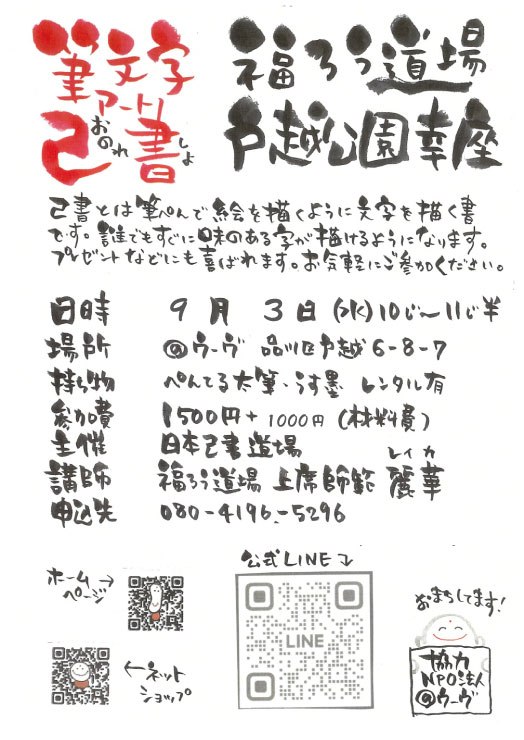 筆文字
アート!
己書
おのれ しょ
福ろう道場
戸越公園幸座
己書とは筆ぺんで絵を描くように文字を描く書
です。誰でもすぐに味のある字が描けるようになります。
プレゼントなどにも喜ばれます。お気軽にご参加ください。
日時 9月 3日 (水) 10じ〜11じ半
場所 @ウーヴ 品川区戸越6-8-7
持ち物 ぺんてる太筆・うす墨 レンタル有
参加費 1500円+1000円 (材料費)
主催 日本己書道場
レイカ
講師 福ろう道場 上席師範 麗華
申込先 080-4196-5296
公式LINE
ホーム
ページ
LINE
ネット
ショップ
おまちしてます!
協力
NPO法人
@ウーヴ